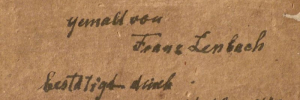 gemalt von
Franz Lenbach
bestätigt durch